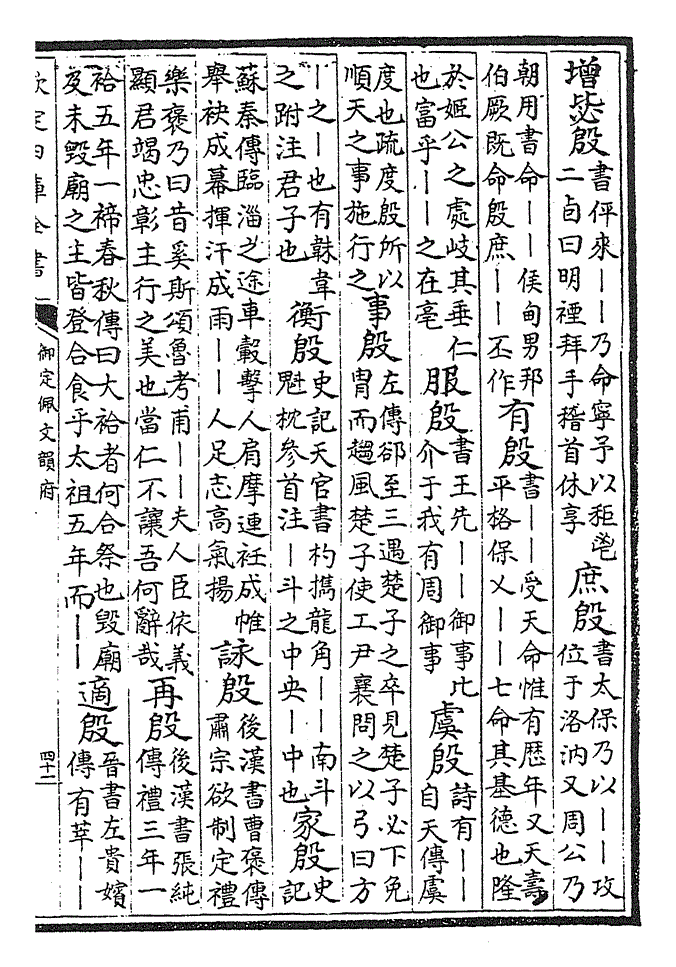 增毖殷書伻來――乃命寧予以秬鬯
二卣曰明禋拜手稽首休享
庶殷書太保乃以――攻
位于洛汭又周公乃
朝用書命――侯甸男邦
伯厥既命殷庶――丕作
有殷書――受天命惟有歴年又天壽
平格保乂――七命其基德也隆
於姬公之處岐其垂仁
也富乎――之在亳
服殷書王先――御事比
介于我有周御事
虞殷詩有――
自天傳虞
度也疏度殷所以
順天之事施行之
事殷左傳郤至三遇楚子之卒見楚子必下免
胄而趨風楚子使工尹襄問之以弓曰方
―之―也有韎韋
之跗注君子也
衡殷史記天官書杓攜龍角――南斗
魁枕參首注―斗之中央―中也
家殷史
記
蘇秦傳臨淄之途車轂擊人肩摩連衽成帷
舉袂成幕揮汗成雨――人足志高氣揚
詠殷後漢書曹褒傳
肅宗欲制定禮
樂褒乃曰昔奚斯頌魯考甫――夫人臣依義
顯君竭忠彰主行之美也當仁不讓吾何辭哉
再殷後漢書張純
傳禮三年一
祫五年一禘春秋傳曰大祫者何合祭也毀廟
及未毀廟之主皆登合食乎太祖五年而――
適殷晉書左貴嬪
傳有莘――
欽定四庫全書
御定佩文韻府
四十二